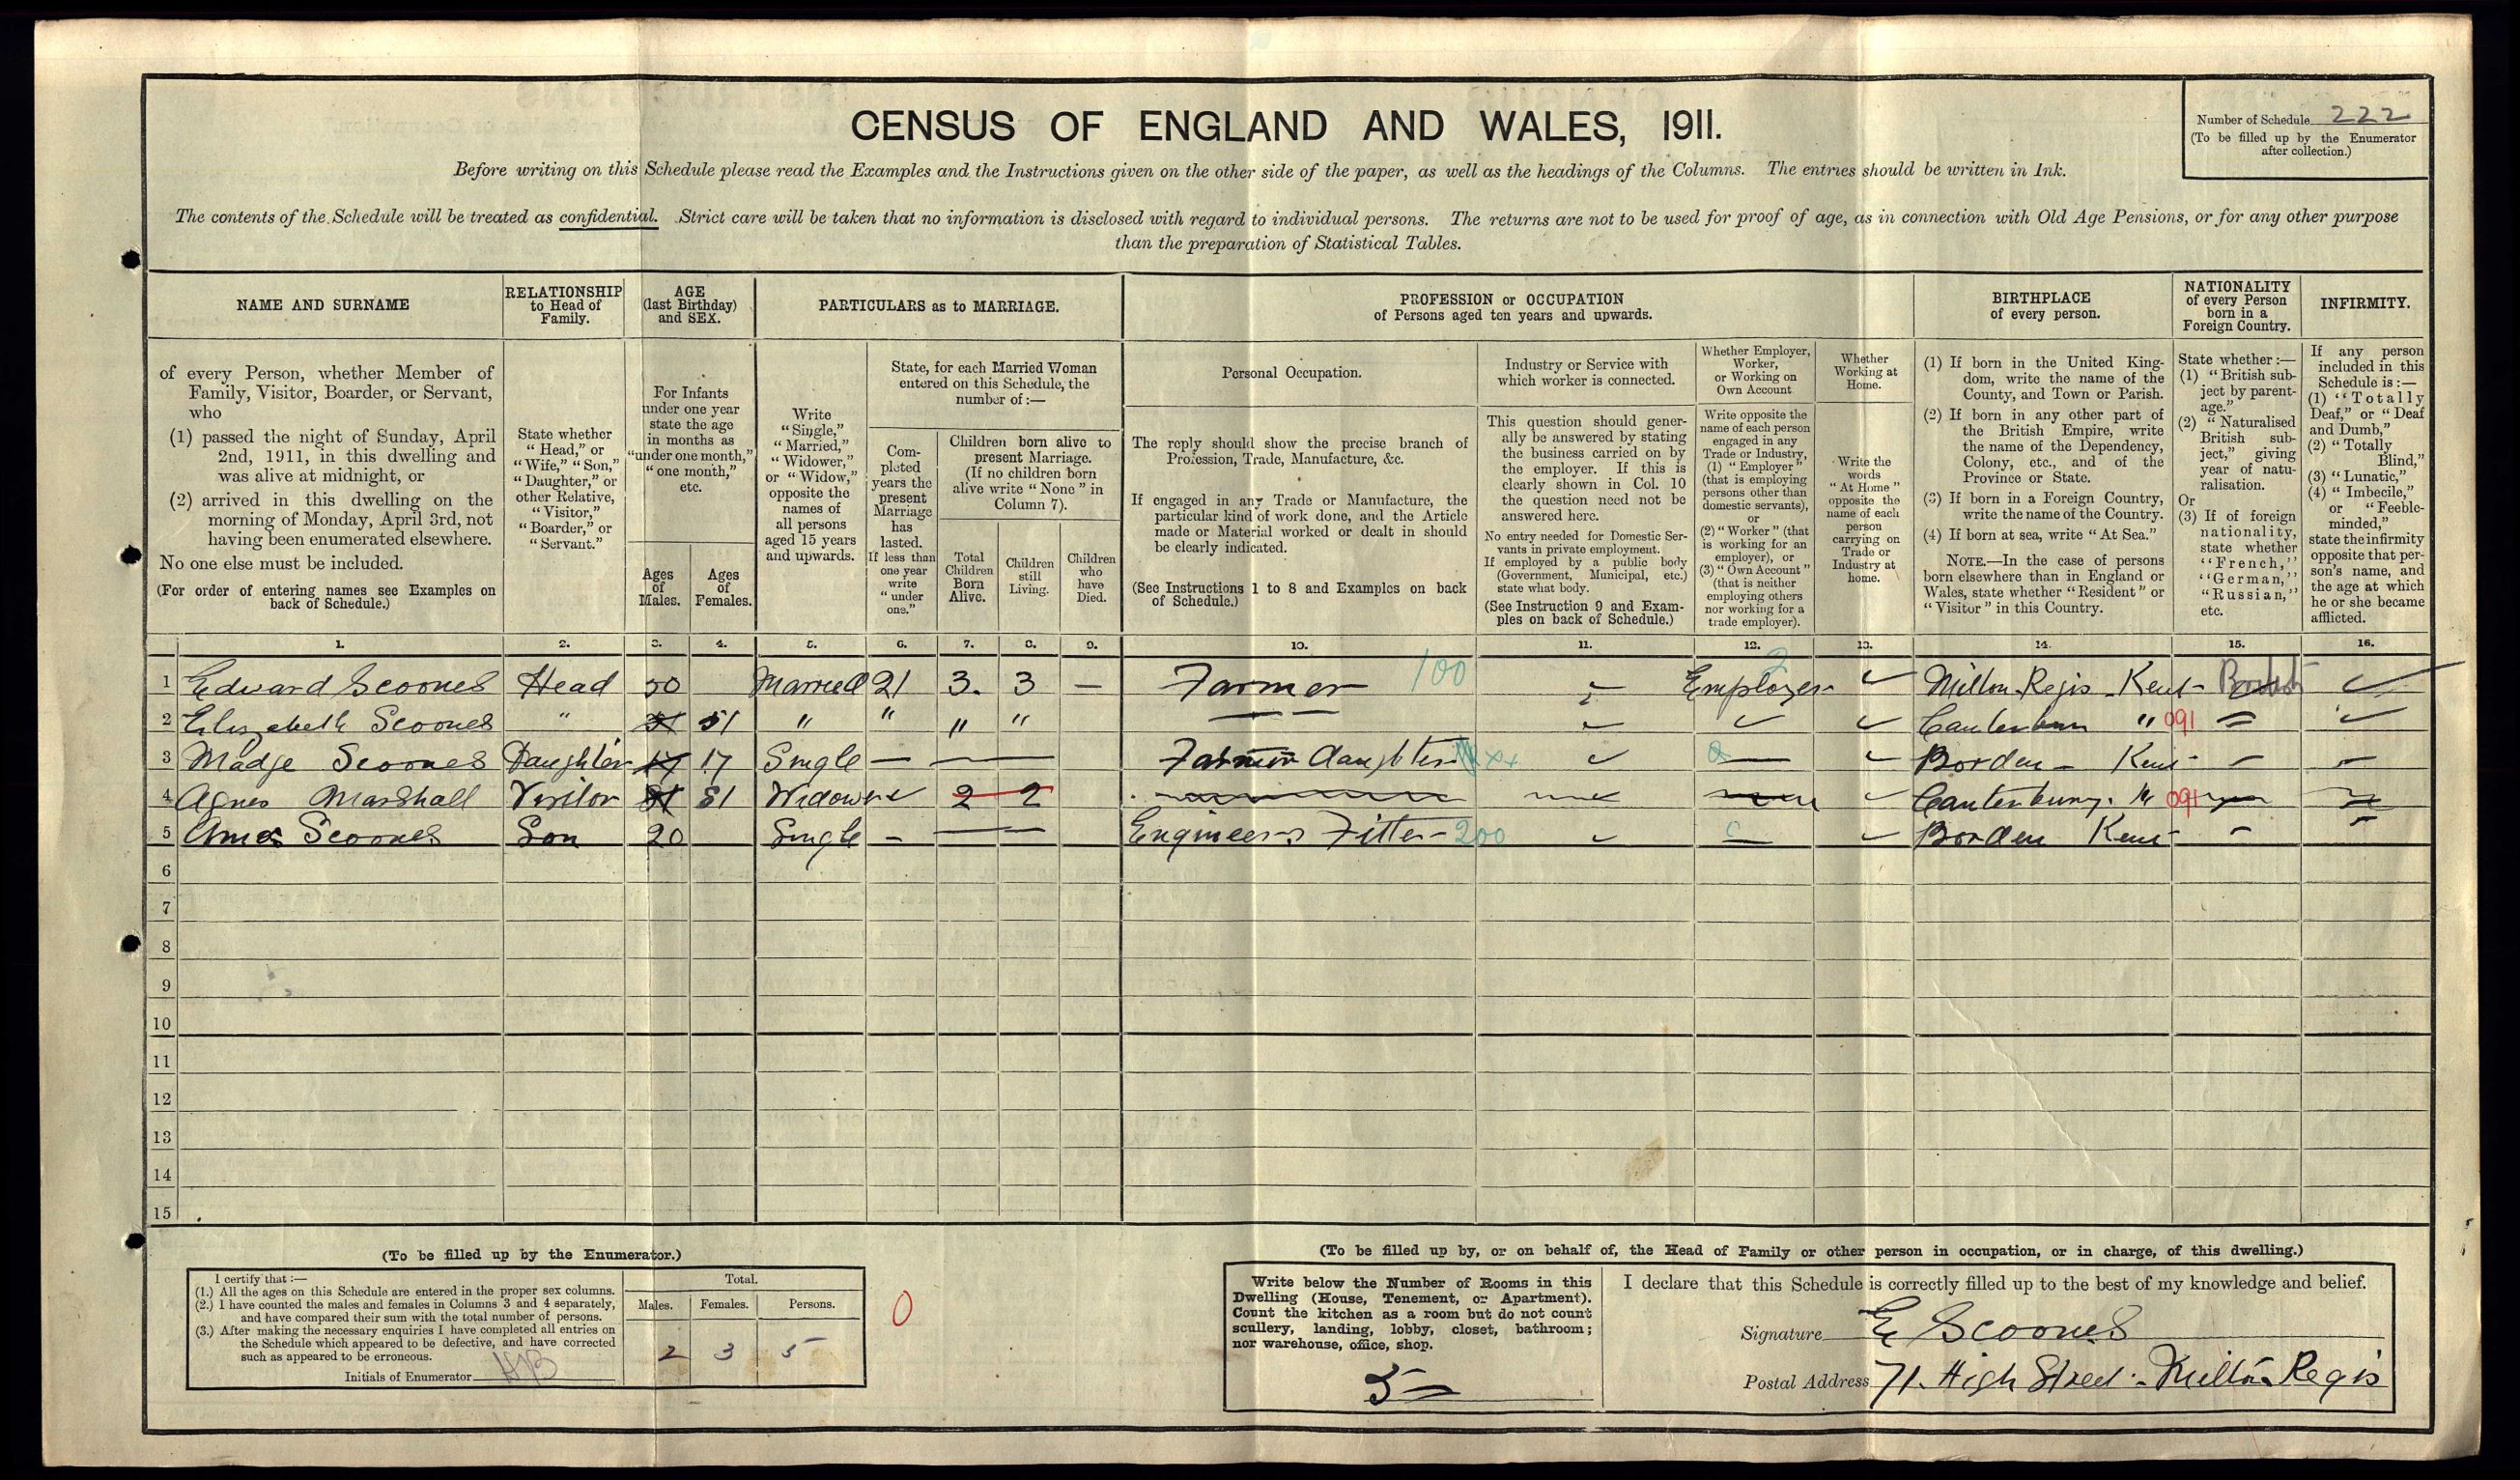 CENSUS OF ENGLAND AND WALES, 1911.
Number of Schedule 222
(To be filled up by the Enumerator
after collection.)
Before writing on this Schedule please read the Examples and the Instructions given on the other side of the paper, as well as the headings of the Columns. The entries should be written in Ink.
The contents of the Schedule will be treated as confidential. Strict care will be taken that no information is disclosed with regard to individual persons. The returns are not to be used for proof of age, as in connection with Old Age Pensions, or for any other purpose
than the preparation of Statistical Tables.
NAME AND SURNAME
of every Person, whether Member of
Family, Visitor, Boarder, or Servant,
who
(1) passed the night of Sunday, April
2nd, 1911, in this dwelling and
was alive at midnight, or
(2) arrived in this dwelling on the
morning of Monday, April 3rd, not
having been enumerated elsewhere.
No one else must be included.
(For order of entering names see Examples on
back of Schedule.)
RELATIONSHIP
to Head of
Family.
State whether
"Head," or
"Wife," "Son,"
"Daughter," or
other Relative,
"Visitor,"
"Boarder," or
"Servant."
AGE
(last Birthday)
and SEX.
For Infants
under one year
state the age
in months as
"under one month,"
"one month,"
etc.
Ages
of
Males.
Ages
of
Females.
PARTICULARS as to MARRIAGE.
Write
"Single,"
"Married,"
"Widower,"
or "Widow,"
opposite the
names of
all persons
aged 15 years
and upwards.
State, for each Married Woman
entered on this Schedule, the
number of :—
Com-
pleted
years the
present
Marriage
has
lasted.
If less than
one year
write
"under
one."
Children born alive to
present Marriage.
(If no children born
alive write "None" in
Column 7).
Total
Children
Born
Alive.
Children
still
Living.
Children
who
have
Died.
PROFESSION or OCCUPATION
of Persons aged ten years and upwards.
Personal Occupation.
The reply should show the precise branch of
Profession, Trade, Manufacture, &c.
If engaged in any Trade or Manufacture, the
particular kind of work done, and the Article
made or Material worked or dealt in should
be clearly indicated.
(See Instructions 1 to 8 and Examples on back
of Schedule.)
Industry or Service with
which worker is connected.
This question should gener-
ally be answered by stating
the business carried on by
the employer. If this is
clearly shown in Col. 10
the question need not be
answered here.
No entry needed for Domestic Ser-
vants in private employment.
If employed by a public body
(Government, Municipal, etc.)
state what body.
(See Instruction 9 and Exam-
ples on back of Schedule.)
Whether Employer,
Worker,
or Working on
Own Account
Write opposite the
name of each person
engaged in any
Trade or Industry,
(1) "Employer"
(that is employing
persons other than
domestic servants),
or
(2) "Worker" (that
is working for an
employer), or
(3) "Own Account"
(that is neither
employing others
nor working for a
trade employer).
Whether
Working at
Home.
Write the
words
"At Home"
opposite the
name of each
person
carrying on
Trade or
Industry at
home.
BIRTHPLACE
of every person.
(1) If born in the United King-
dom, write the name of the
County, and Town or Parish.
(2) If born in any other part of
the British Empire, write
the name of the Dependency,
Colony, etc., and of the
Province or State.
(3) If born in a Foreign Country,
write the name of the Country.
(4) If born at sea, write "At Sea."
NOTE.—In the case of persons
born elsewhere than in England or
Wales, state whether "Resident" or
"Visitor" in this Country.
NATIONALITY
of every Person
born in a
Foreign Country.
State whether :—
(1) "British sub-
ject by parent-
age."
(2) "Naturalised
British sub-
ject," giving
year of natu-
ralisation.
Or
(3) If of foreign
nationality,
state whether
"French,"
"German,"
"Russian,"
etc.
INFIRMITY.
If any person
included in this
Schedule is :—
(1) "Totally
Deaf," or "Deaf
and Dumb,"
(2) "Totally
Blind,"
(3) "Lunatic,"
(4) "Imbecile,"
or "Feeble-
minded,"
state the infirmity
opposite that per-
son's name, and
the age at which
he or she became
afflicted.
1. 2. 3. 4. 5. 6. 7. 8. 9. 10. 11. 12. 13. 14. 15. 16.
1 Edward Scoones Head 50 Married 21 3. 3 — Farmer 100 Employer 2 Milton Regis Kent
2 Elizabeth Scoones " 51 " " " " Canterbury " 091
3 Madge Scoones Daughter 17 17 Single — — Daughter Borden - Kent
4 Agnes Marshall Visitor 81 Widow 2 2 Canterbury. 091
5 Scoones Son 20 Single — — Engineers Fitter 200 Borden Kent
6
7
8
9
10
11
12
13
14
15
(To be filled up by the Enumerator.)
I certify that :—
(1.) All the ages on this Schedule are entered in the proper sex columns.
(2.) I have counted the males and females in Columns 3 and 4 separately,
and have compared their sum with the total number of persons.
(3.) After making the necessary enquiries I have completed all entries on
the Schedule which appeared to be defective, and have corrected
such as appeared to be erroneous.
Initials of Enumerator HB
Total.
Males. Females. Persons.
2 3 5
0
(To be filled up by, or on behalf of, the Head of Family or other person in occupation, or in charge, of this dwelling.)
Write below the Number of Rooms in this
Dwelling (House, Tenement, or Apartment).
Count the kitchen as a room but do not count
scullery, landing, lobby, closet, bathroom;
nor warehouse, office, shop.
5
I declare that this Schedule is correctly filled up to the best of my knowledge and belief.
Signature E Scoones
Postal Address 71. High Street. Milton Regis